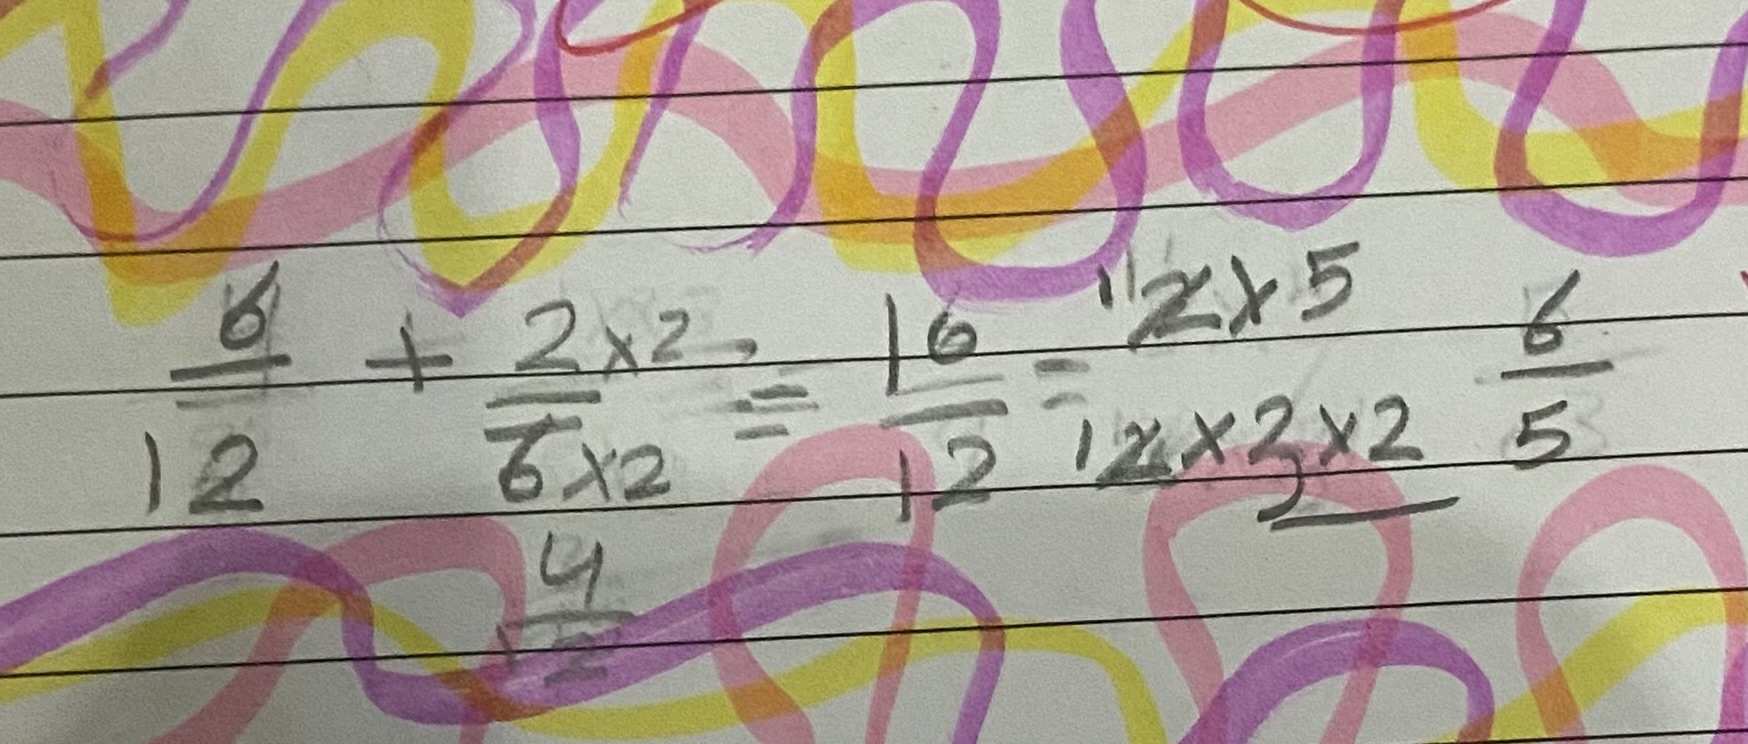 6/12 + 2×2/6×2 = 10/12 = 2×5/2×2×2 6/5
4/12